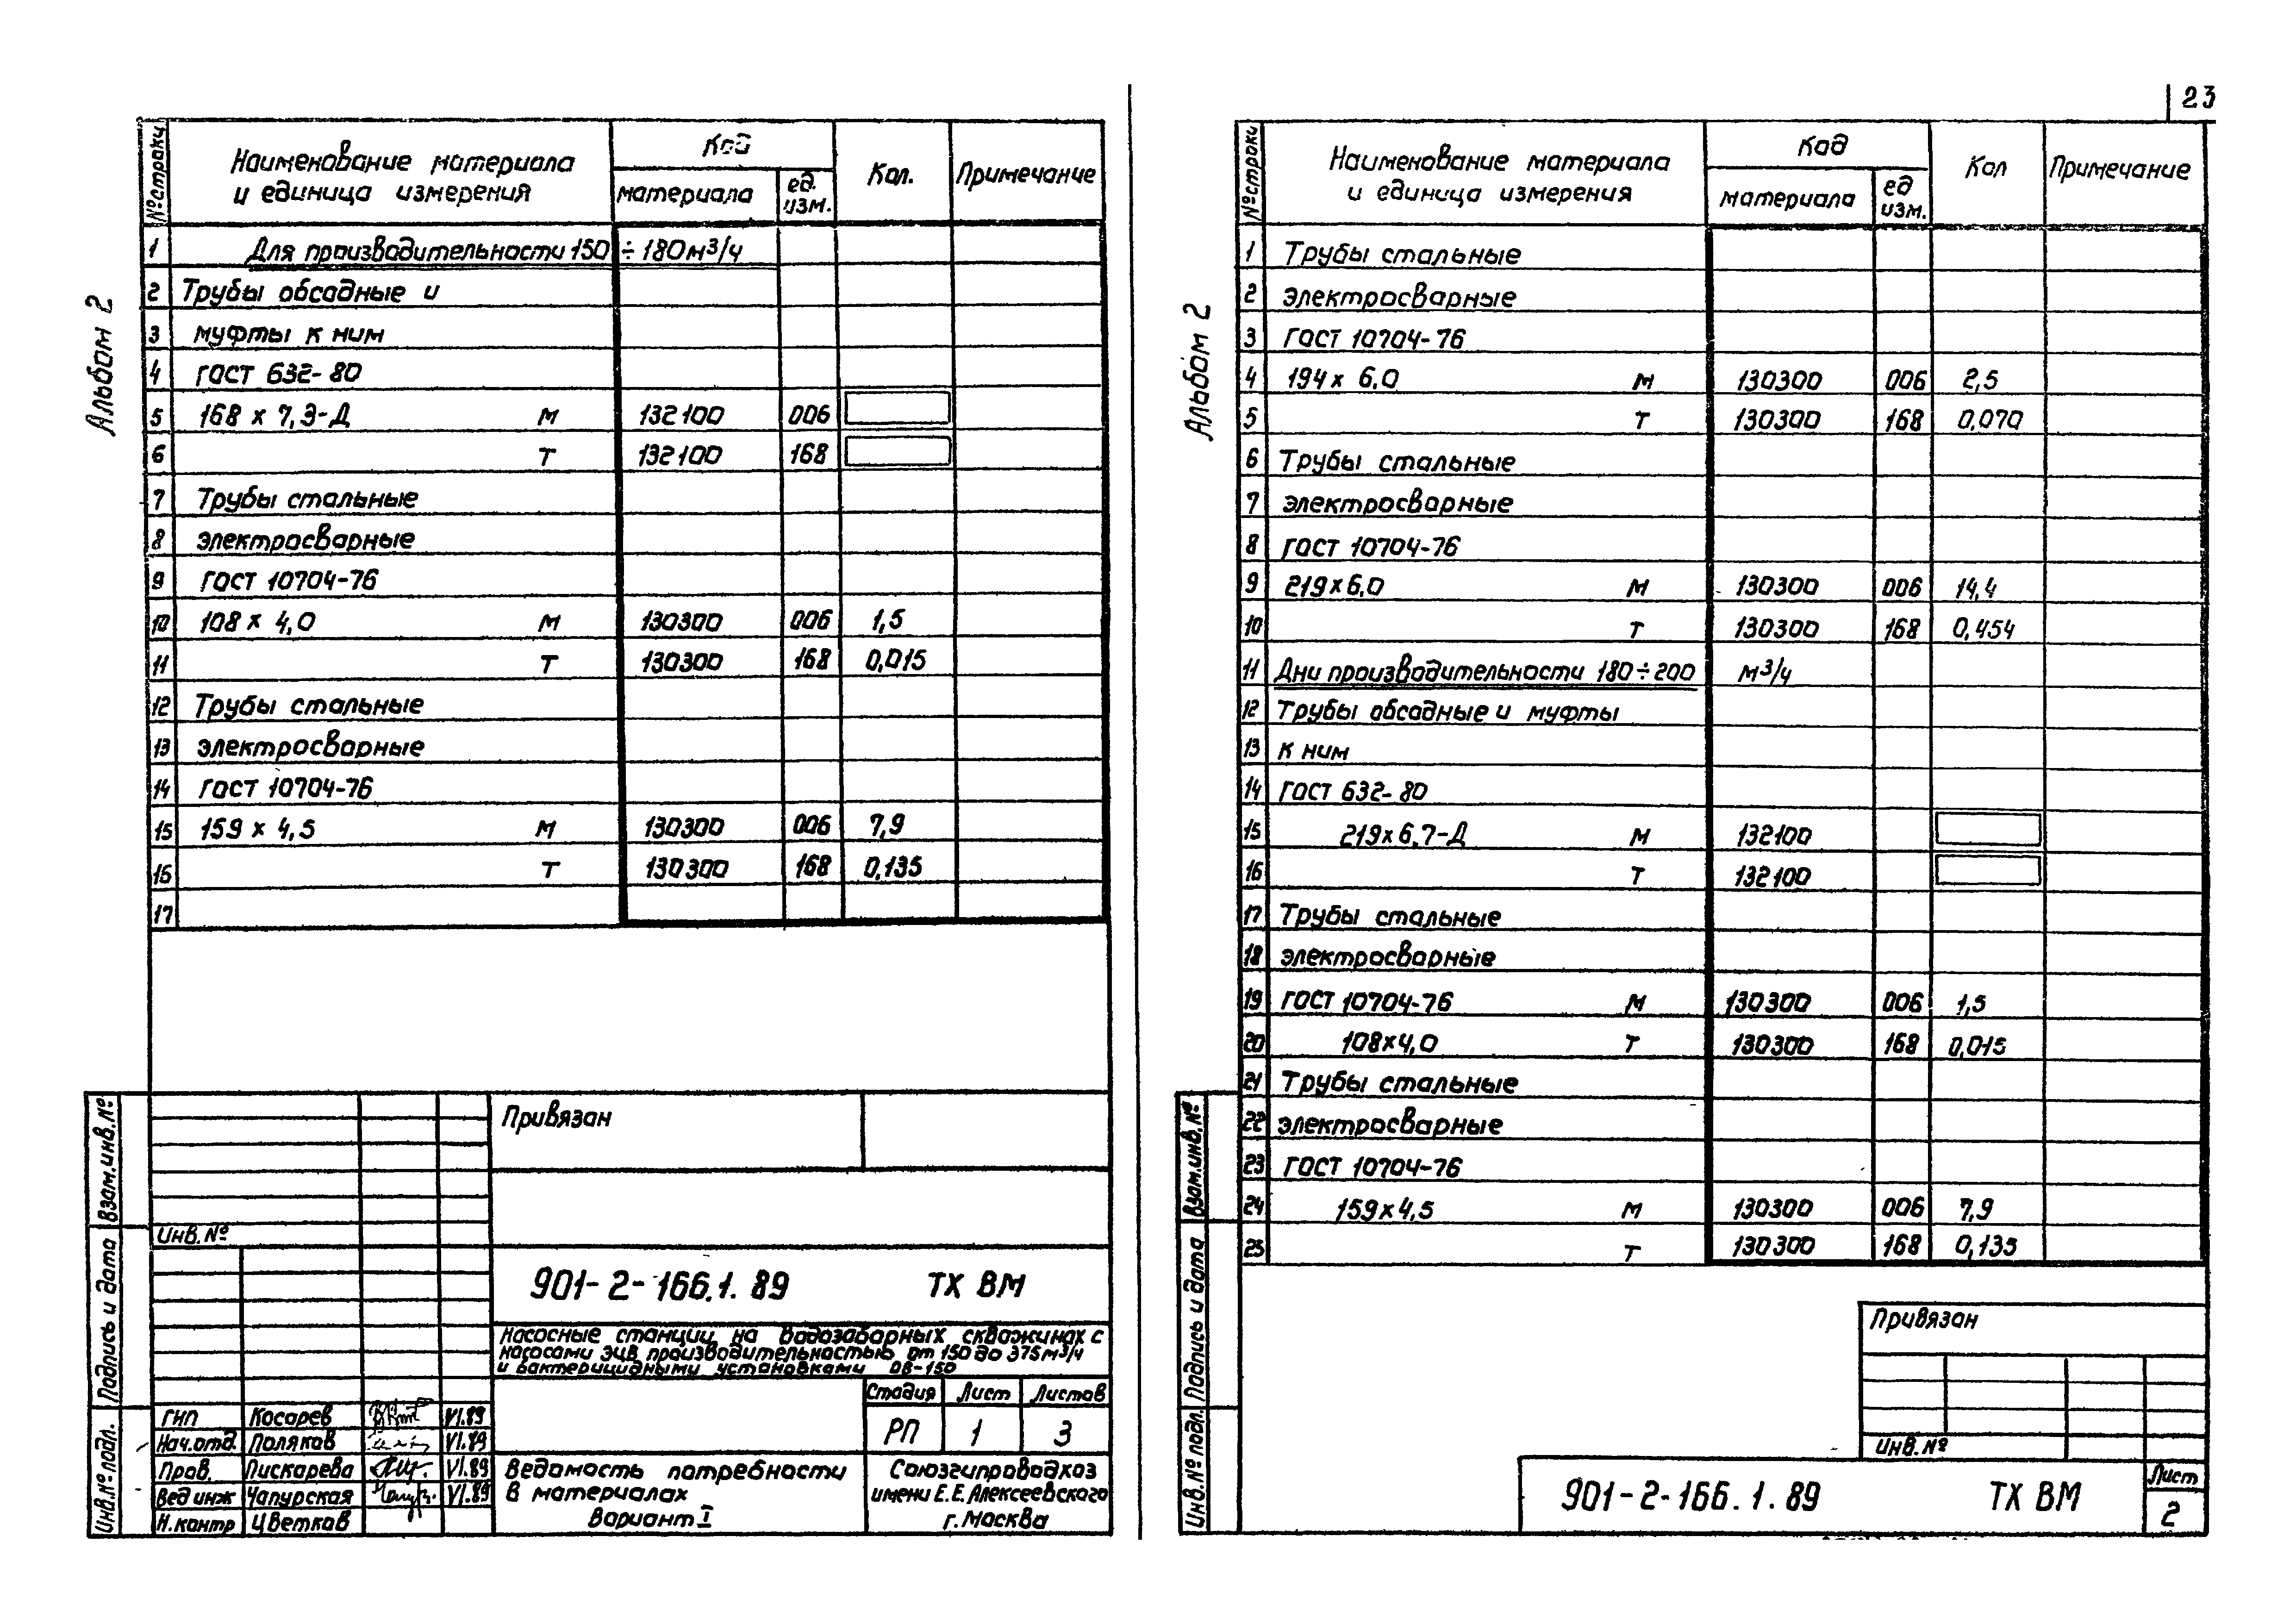 23
Альбом 2
№ строки Наименование материала и единица измерения Код материала ед. изм. Кол. Примечание
1 Для производительности 150 ÷ 180 м³/ч
2 Трубы обсадные и
3 муфты к ним
4 ГОСТ 632-80
5 168 х 7,3-Д м 132100 006
6 т 132100 168
7 Трубы стальные
8 электросварные
9 ГОСТ 10704-76
10 108 х 4,0 м 130300 006 1,5
11 т 130300 168 0,015
12 Трубы стальные
13 электросварные
14 ГОСТ 10704-76
15 159 х 4,5 м 130300 006 7,9
16 т 130300 168 0,135
17
Привязан
Инв. №
901-2-166.1.89 ТХ ВМ
Насосные станции на водозаборных скважинах с
насосами ЭЦВ производительностью от 150 до 375 м³/ч
и бактерицидными установками ОВ-150
Стадия Лист Листов
РП 1 3
ГИП Косарев VI.89
Нач.отд. Поляков VI.89
Пров. Пискарева VI.89
Вед инж Чапурская VI.89
Н.контр Цветков
Ведомость потребности
в материалах
вариант I
Союзгипроводхоз
имени Е.Е.Алексеевского
г.Москва
Взам.инв.№
Подпись и дата
Инв.№ подл.
Альбом 2
№ строки Наименование материала и единица измерения Код материала ед изм. Кол Примечание
1 Трубы стальные
2 электросварные
3 ГОСТ 10704-76
4 194 х 6,0 м 130300 006 2,5
5 т 130300 168 0,070
6 Трубы стальные
7 электросварные
8 ГОСТ 10704-76
9 219х6,0 м 130300 006 14,4
10 т 130300 168 0,454
11 Дни производительности 180÷200 м³/ч
12 Трубы обсадные и муфты
13 к ним
14 ГОСТ 632-80
15 219х6,7-Д м 132100
16 т 132100
17 Трубы стальные
18 электросварные
19 ГОСТ 10704-76 м 130300 006 1,5
20 108х4,0 т 130300 168 0,015
21 Трубы стальные
22 электросварные
23 ГОСТ 10704-76
24 159х4,5 м 130300 006 7,9
25 т 130300 168 0,135
Привязан
Инв. №
901-2-166.1.89 ТХ ВМ
Лист
2
Взам.инв.№
Подпись и дата
Инв.№ подл.